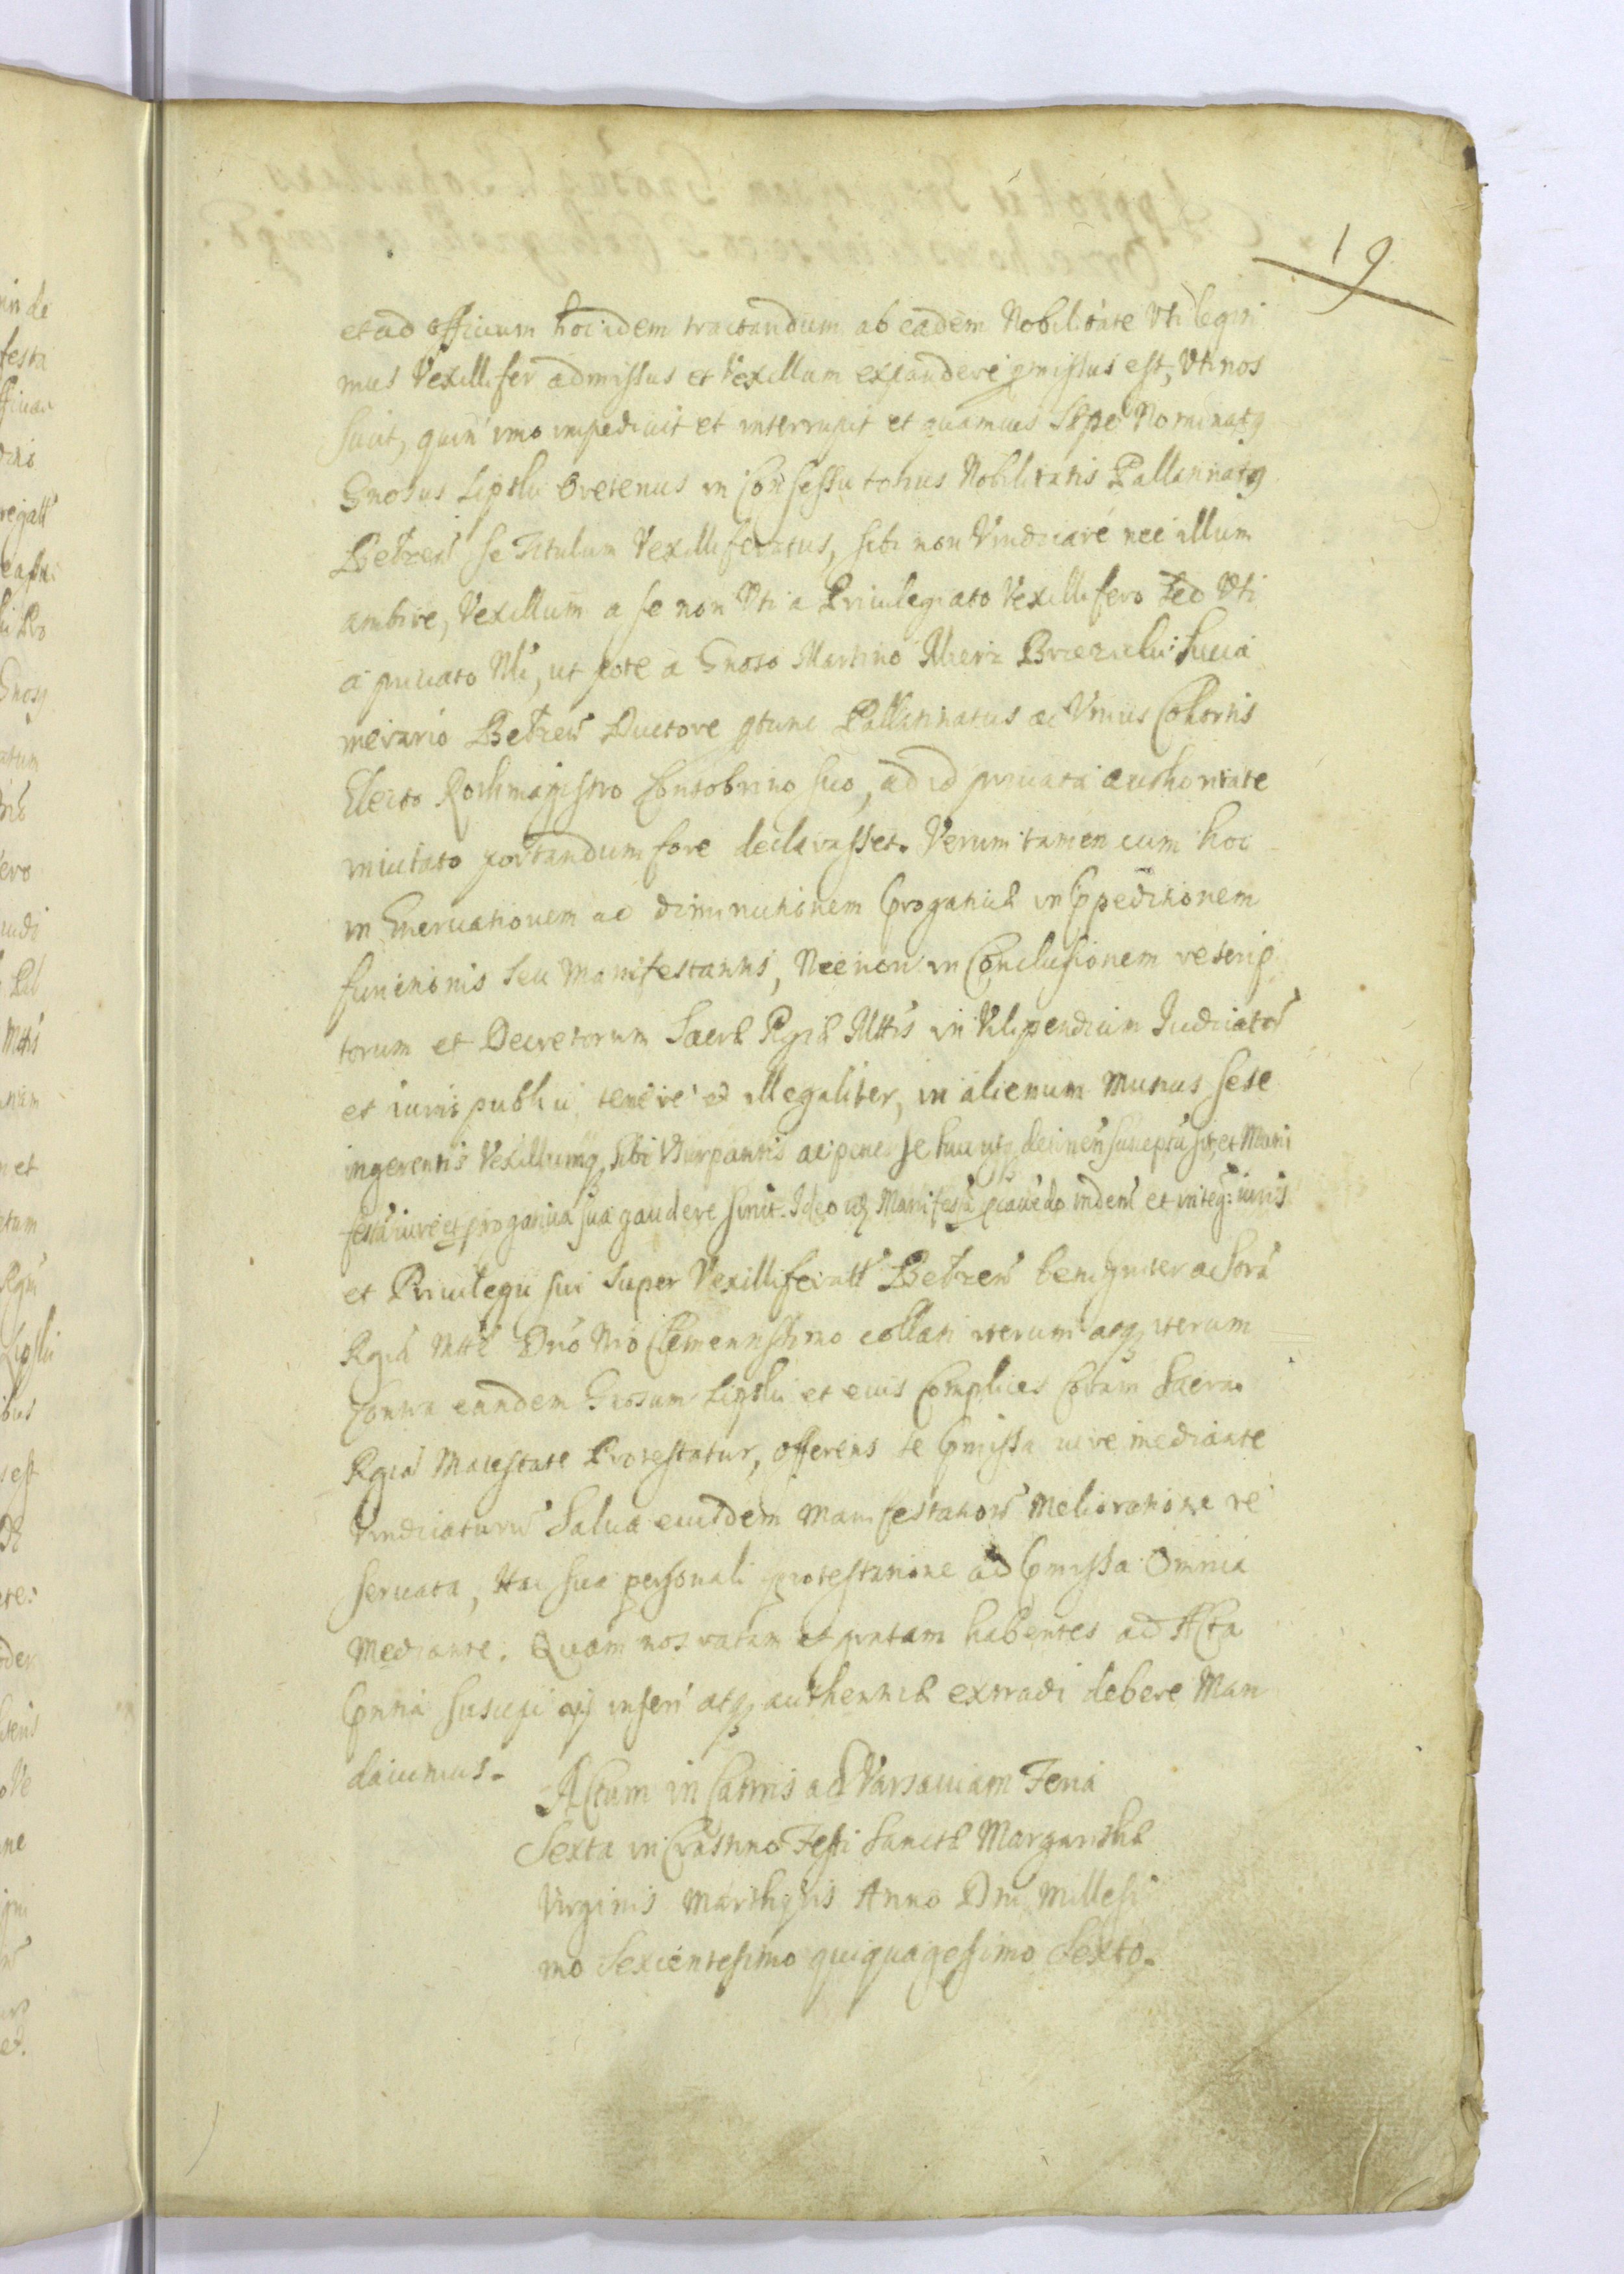 19
et ad officium hoc idem tractandum ab eadem Nobilitate Uti legiti
mus Vexillifer admissus et Vexillum expandere pmissus est, Uti nos
sinit, quin imo impedivit et interrupit et quamvis Sæpe Nominatq
Gnosus Lipski Oretenus in Consessu totius Nobilitatis Pallatinatq
Belzen se Titulum Vexilliferatus, sibi non Vindicare nec illum
ambire, Vexillum a se non Uti a Priuilegiato Vexillifero sed Uti
a priuato Nli, ut pote a Gnoso Martino Mierz Brzezicki Succa
merario Belzen Ductore ptunc Pallatinatus ac Unius Cohortis
Electo Rothmagistro Consobrino suo, ad id priuata authoritate
inuitato portandum fore declarasset. Verum tamen cum hoc
in Eneruationem ac diminutionem Progatiuæ in Exppeditionem
functionis seu Manifestantis, Nec non in Conclusionem rescrip
torum et Decretorum Sacræ Rgiæ Mttis in Vilipendium Iudiciator
et iuris publici temere et illegaliter, in alienum Munus sese
ingerentis Vexillumq sibi Usurpantis ac penes se huc usq detinen suscepta sit, et Mani
festan iure et progatiua sua gaudere sinit. Ideo idq Manifestan pcauedo inden et integ: iuris
et Priuilegii sui super Vexilliferatt Belzen benigniter a Sacra
Rgia Mtte Dno Nro Clementissimo collati iterum atq iterum
Contra eundem Gnosum Lipski et eius Complices Coram Sacra
Rgia Maiestate Protestatur, offerens se Pmissa iure mediante
Vindicaturum Salua eiusdem Manifestationis Melioratione re
seruata, Hac sua personali protestatione ad Pmissa Omnia
Mediante. Quam nos ratam et gratam habentes ad Acta
Pntia suscipi eisq inseri atq authenticæ extradi debere Man
dauimus.
Actum in Castris ad Varsauiam Feria
Sexta in Crastino Festi Sanctæ Margarithæ
Virginis Marthyris Anno Dni Millesi
mo Sexcentesimo quiquagesimo Sexto.